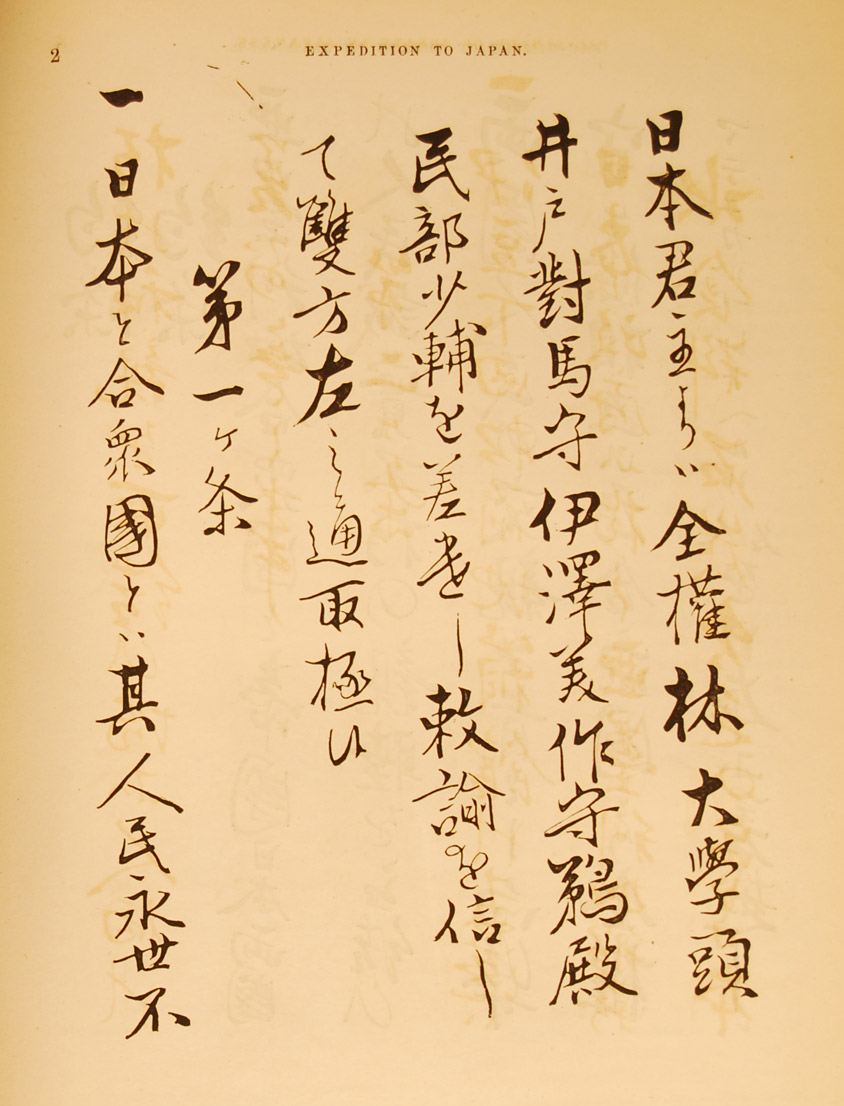 2
EXPEDITION TO JAPAN.
日本君主よりハ全權林大學頭
井戸對馬守伊澤美作守鵜殿
民部少輔を差遣し敕諭を信し
て雙方左之通取極候
第一ケ条
一日本と合衆國とハ其人民永世不